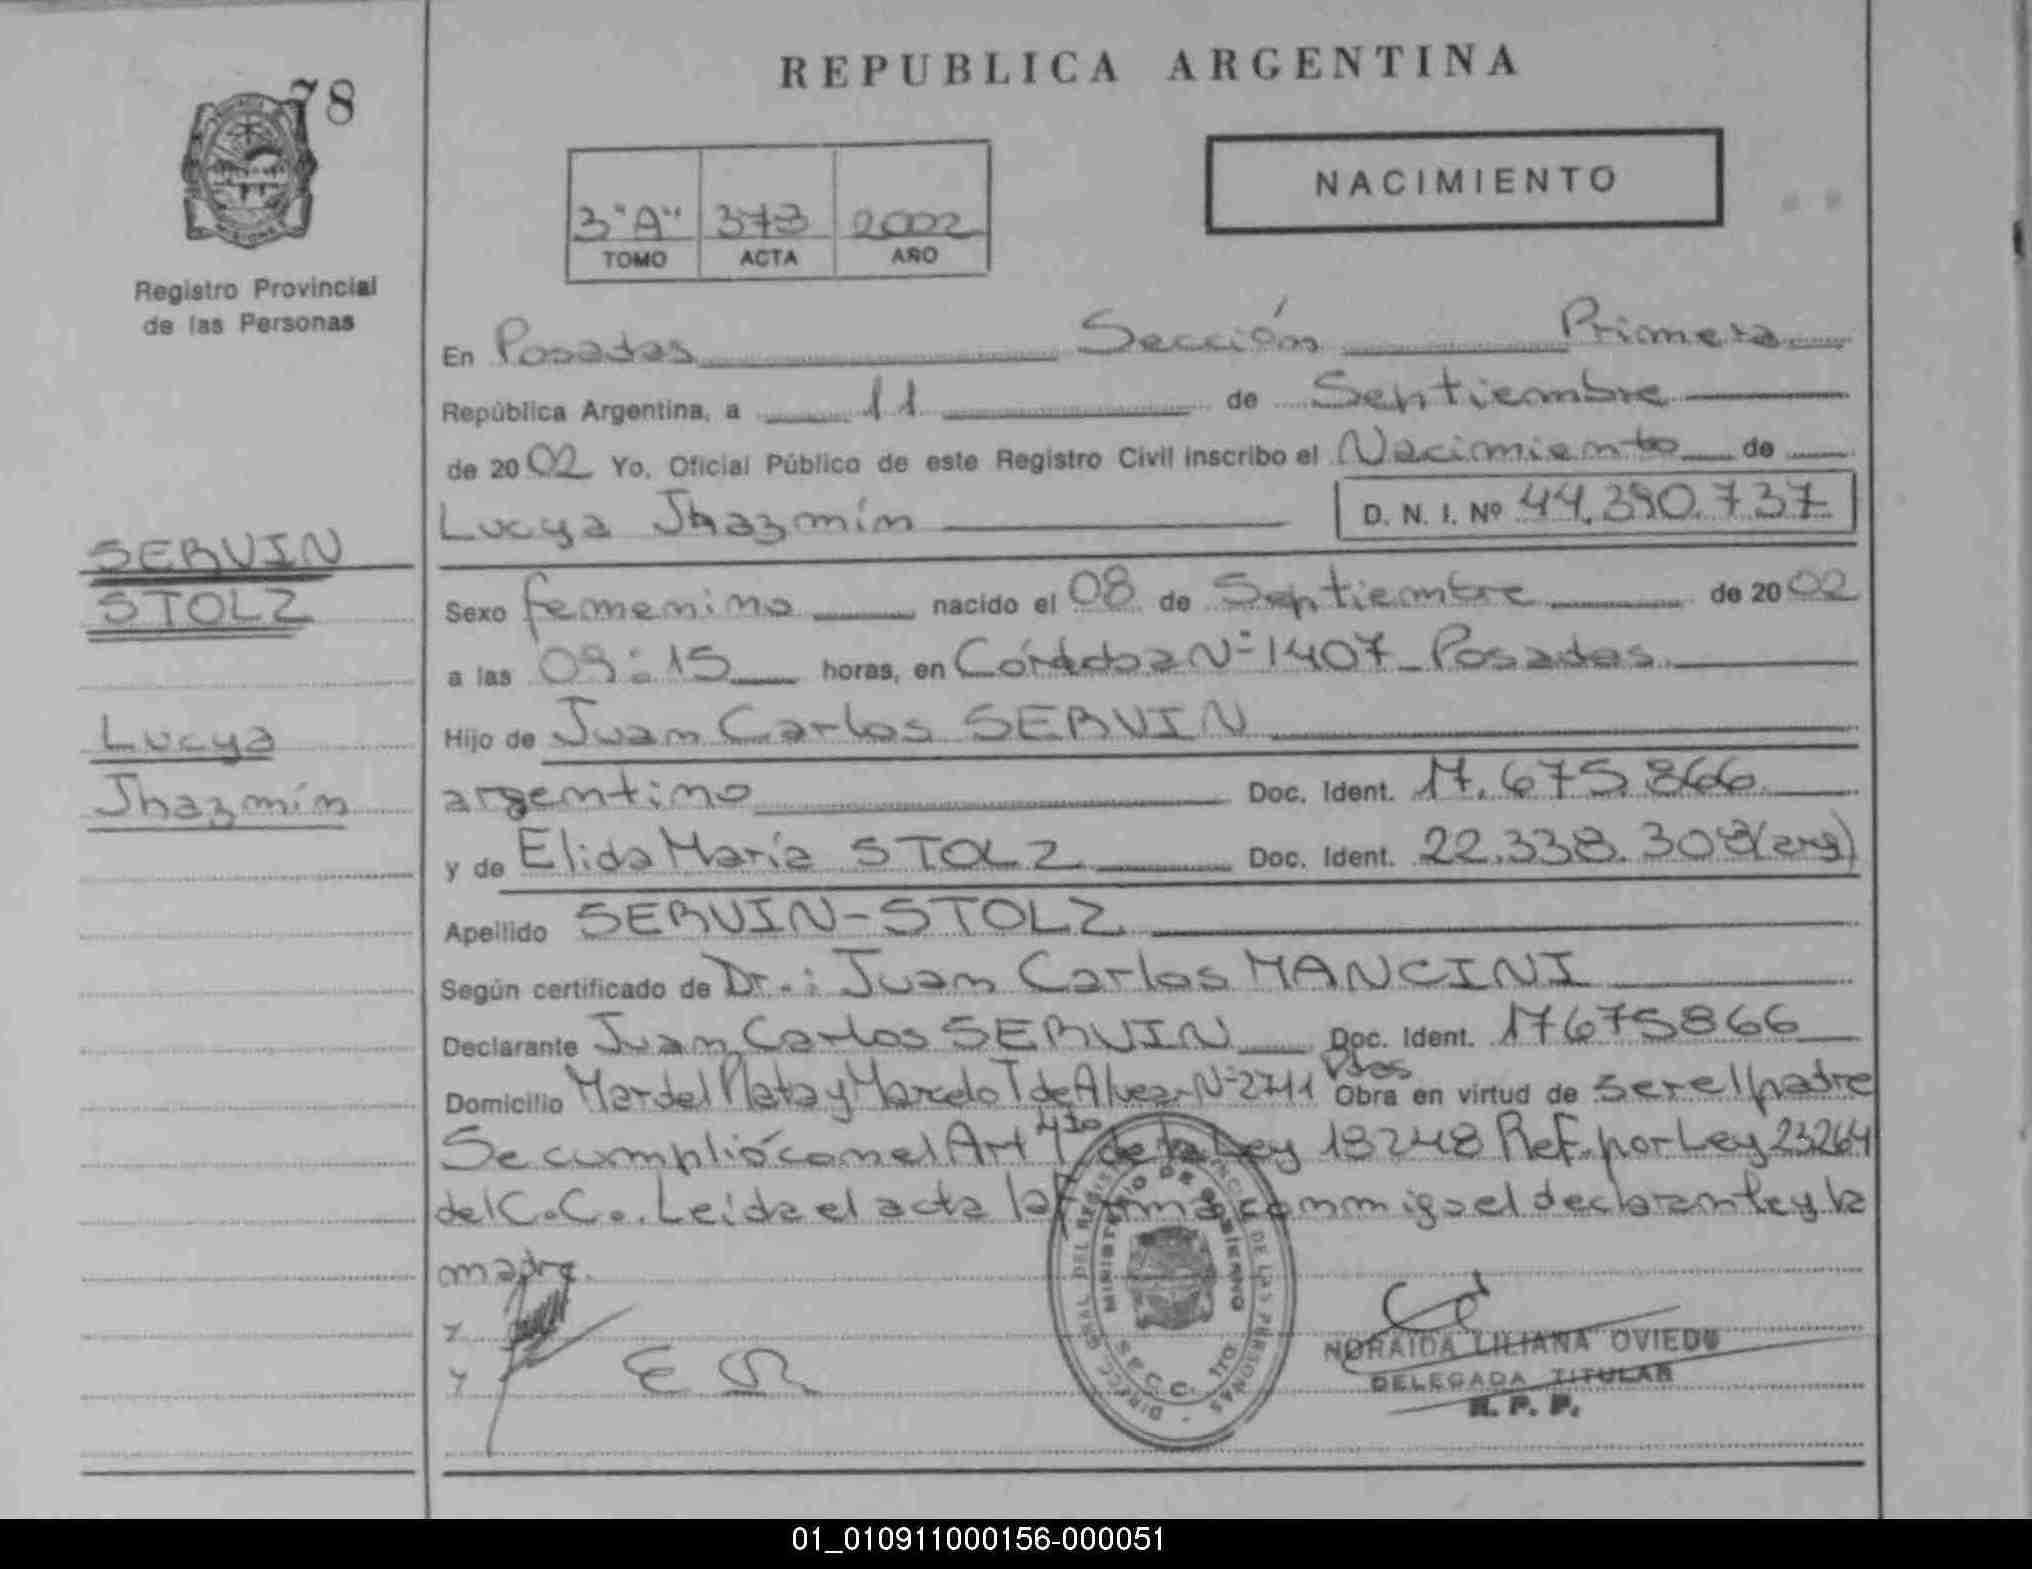 78
REPUBLICA ARGENTINA
NACIMIENTO
3"A" 373 2002
TOMO ACTA AÑO
Registro Provincial
de las Personas
En Posadas Sección Primera
República Argentina, a 11 de Septiembre
de 2002 Yo, Oficial Público de este Registro Civil inscribo el Nacimiento de
Lucya Jhazmín D. N. I. Nº 44.390.737
SERVIN
STOLZ
Lucya
Jhazmín
Sexo femenino nacido el 08 de Septiembre de 2002
a las 09:15 horas, en Córdoba Nº 1407 - Posadas
Hijo de Juan Carlos SERVIN
argentino Doc. Ident. 17.675.866
y de Elida María STOLZ Doc. Ident. 22.338.308 (arg)
Apellido SERVIN-STOLZ
Según certificado de Dr.: Juan Carlos MANCINI
Declarante Juan Carlos SERVIN Doc. Ident. 17675866
Domicilio Mar del Plata y Marcelo T de Alvear Nº 2711 Pdas Obra en virtud de ser el padre
Se cumplió con el Art 4to de la Ley 18248 Ref. por Ley 23264
del C.C.. Leída el acta la firma conmigo el declarante y la
madre.
MINISTERIO DE GOBIERNO
NORAIDA LILIANA OVIEDO
DELEGADA TITULAR
R. P. P.
01_010911000156-000051